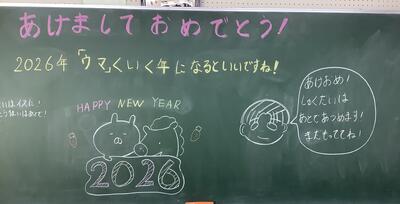 あけましておめでとう!
2026年「ウマ」くいく年になるといいですね!
HAPPY NEW YEAR
2026
あけおめ!
しゅくだいは
あとであつめます!
まだもっててね!